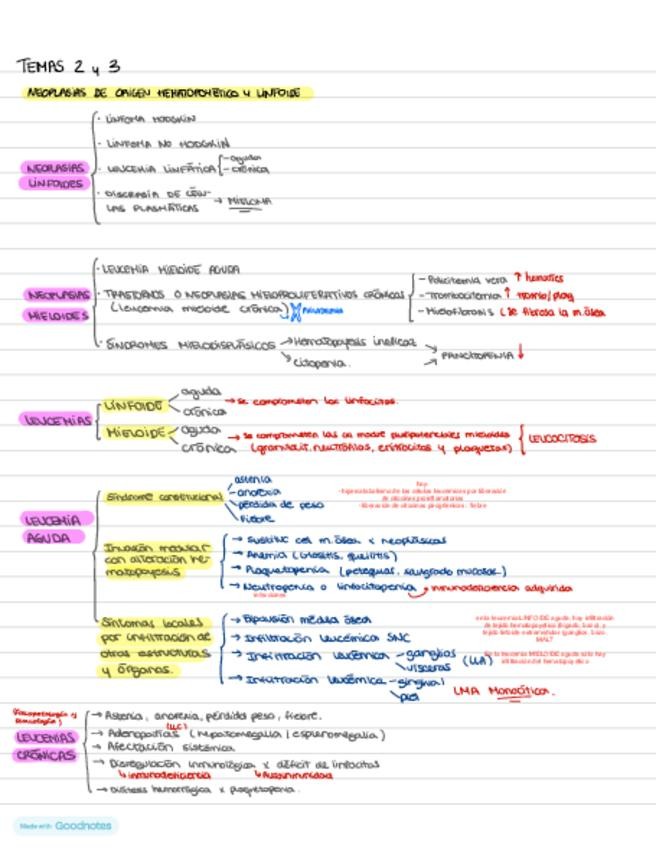 TEMAS 2 y 3
NEOPLASIAS DE ORIGEN HEMATOPOYÉTICO Y LINFOIDE
NEOPLASIAS LINFOIDES
· LINFOMA HODGKIN
· LINFOMA NO HODGKIN
· LEUCEMIA LINFÁTICA
- aguda
- crónica
· DISCRASIA DE CÉLU-
LAS PLASMÁTICAS → MIELOMA
NEOPLASIAS MIELOIDES
· LEUCEMIA MIELOIDE AGUDA
· TRASTORNOS O NEOPLASIAS MIELOPROLIFERATIVOS CRÓNICOS
(leucemia mieloide crónica)
- Policitemia vera ↑ hematíes
- Trombocitemia ↑ trombo/plaq
- Mielofibrosis (se fibrosa la m.ósea
· SÍNDROMES MIELODISPLÁSICOS
→ Hematopoyesis ineficaz
→ citopenia.
→ PANCITOPENIA ↓
LEUCEMIAS
LINFOIDE
aguda
crónica
→ se comprometen los linfocitos.
MIELOIDE
aguda
crónica
→ se comprometen las ca madre pluripotenciales mieloides
(granulocit. neutrófilos, eritrocitos y plaquetas)
LEUCOCITOSIS
LEUCEMIA AGUDA
Síndrome constitucional
astenia
- anorexia
pérdida de peso
fiebre
hay:
-hipercatabolismo de las células leucémicas por liberación
de citocinas proinflamatorias
-liberación de citocinas pirogénicas: fiebre
Invasión medular
con alteración he-
matopoyesis
→ Sustituc cel m.ósea x neoplásicas
→ Anemia (glositis, queilitis)
→ Plaquetopenia (petequias, sangrado mucosas)
→ Neutropenia o linfocitopenia → inmunodeficiencia adquirida
infecciones
Síntomas locales
por infiltración de
otras estructuras
y órganos.
→ Expansión médula ósea
→ Infiltración leucémica SNC
→ Infiltración leucémica - ganglios
vísceras (LLA)
→ Infiltración leucémica - gingival
piel
LMA Monocítica.
en la leucemia LINFOIDE aguda hay infiltración
de tejido hematopoyético (hígado, bazo), y
tejido linfoide extramedular (ganglios, bazo,
MALT
En la leucemia MIELOIDE aguda sólo hay
infiltración del hematopoyético
LEUCEMIAS CRÓNICAS
→ Astenia, anorexia, pérdida peso, fiebre.
→ Adenopatías (hepatomegalia/esplenomegalia)
(LLC)
→ Afectación sistémica
→ Disregulación inmunológica x déficit de linfocitos
↳ inmunodeficiencia
↳ Autoinmunidad
→ Diátesis hemorrágica x plaquetopenia.
Made with Goodnotes